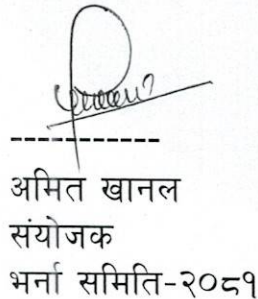 अमित खानल
संयोजक
भर्ना समिति-२०८१